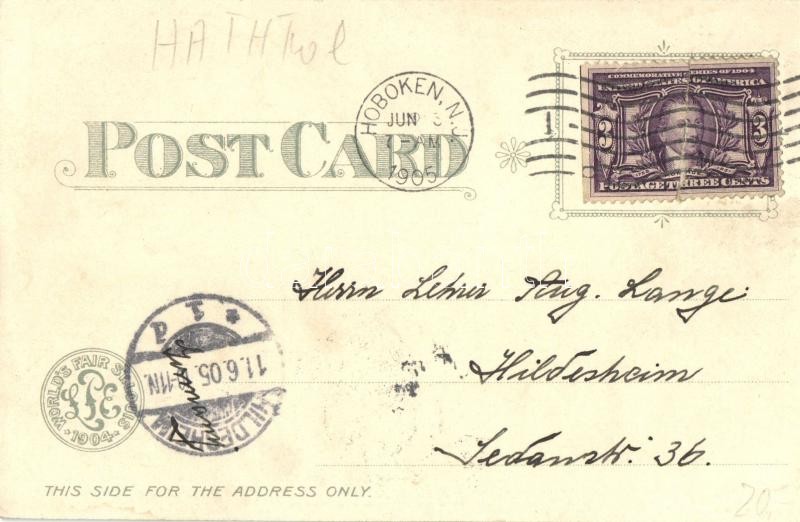 COMMEMORATIVE SERIES OF 1904
UNITED STATES OF AMERICA
3 3
POSTAGE THREE CENTS
HOBOKEN, N.J.
JUN
AM
1905
1
POST CARD
Herrn Lehrer Aug. Lange
Hildesheim
Sedanstr. 36.
* 1 d
11.6.05. 11N.
HILDESHEIM
WORLD'S FAIR ST. LOUIS
LPE
· 1904 ·
THIS SIDE FOR THE ADDRESS ONLY.
20,-